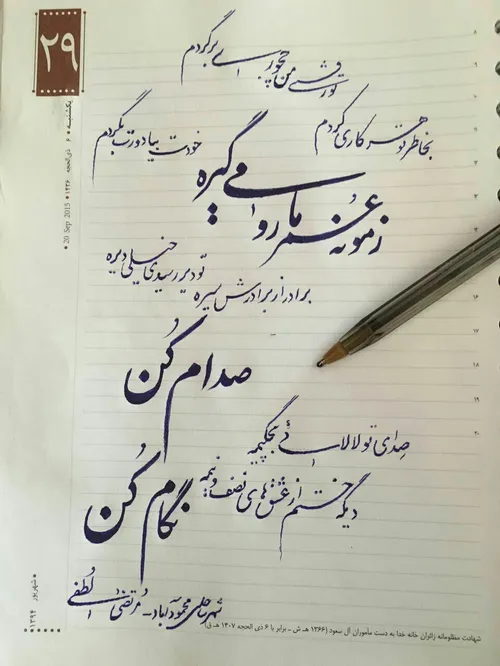 ۲۹
یکشنبه * ۶ ذی‌الحجه ۱۴۳۶ * 20 Sep 2015
تو رفتی من چجوری برگردم
بخاطر تو هر کاری کردم
خودت بیا دورت بگردم
زمونه عمر ما رو می گیره
تو دیر رسیدی خیلی دیره
برادر از برادرش سیره
صدام کُن
صدای تو لالائی بچگیمه
دیگه خستم از عشق های نصف و نیمه
نگام کُن
شهر ساحلی محمودآباد - مرتضی لُطفی
شهریور * ۱۳۹۴
شهادت مظلومانه زائران خانه خدا به دست مأموران آل سعود (۱۳۶۶ هـ ش - برابر با ۶ ذی الحجه ۱۴۰۷ هـ ق)